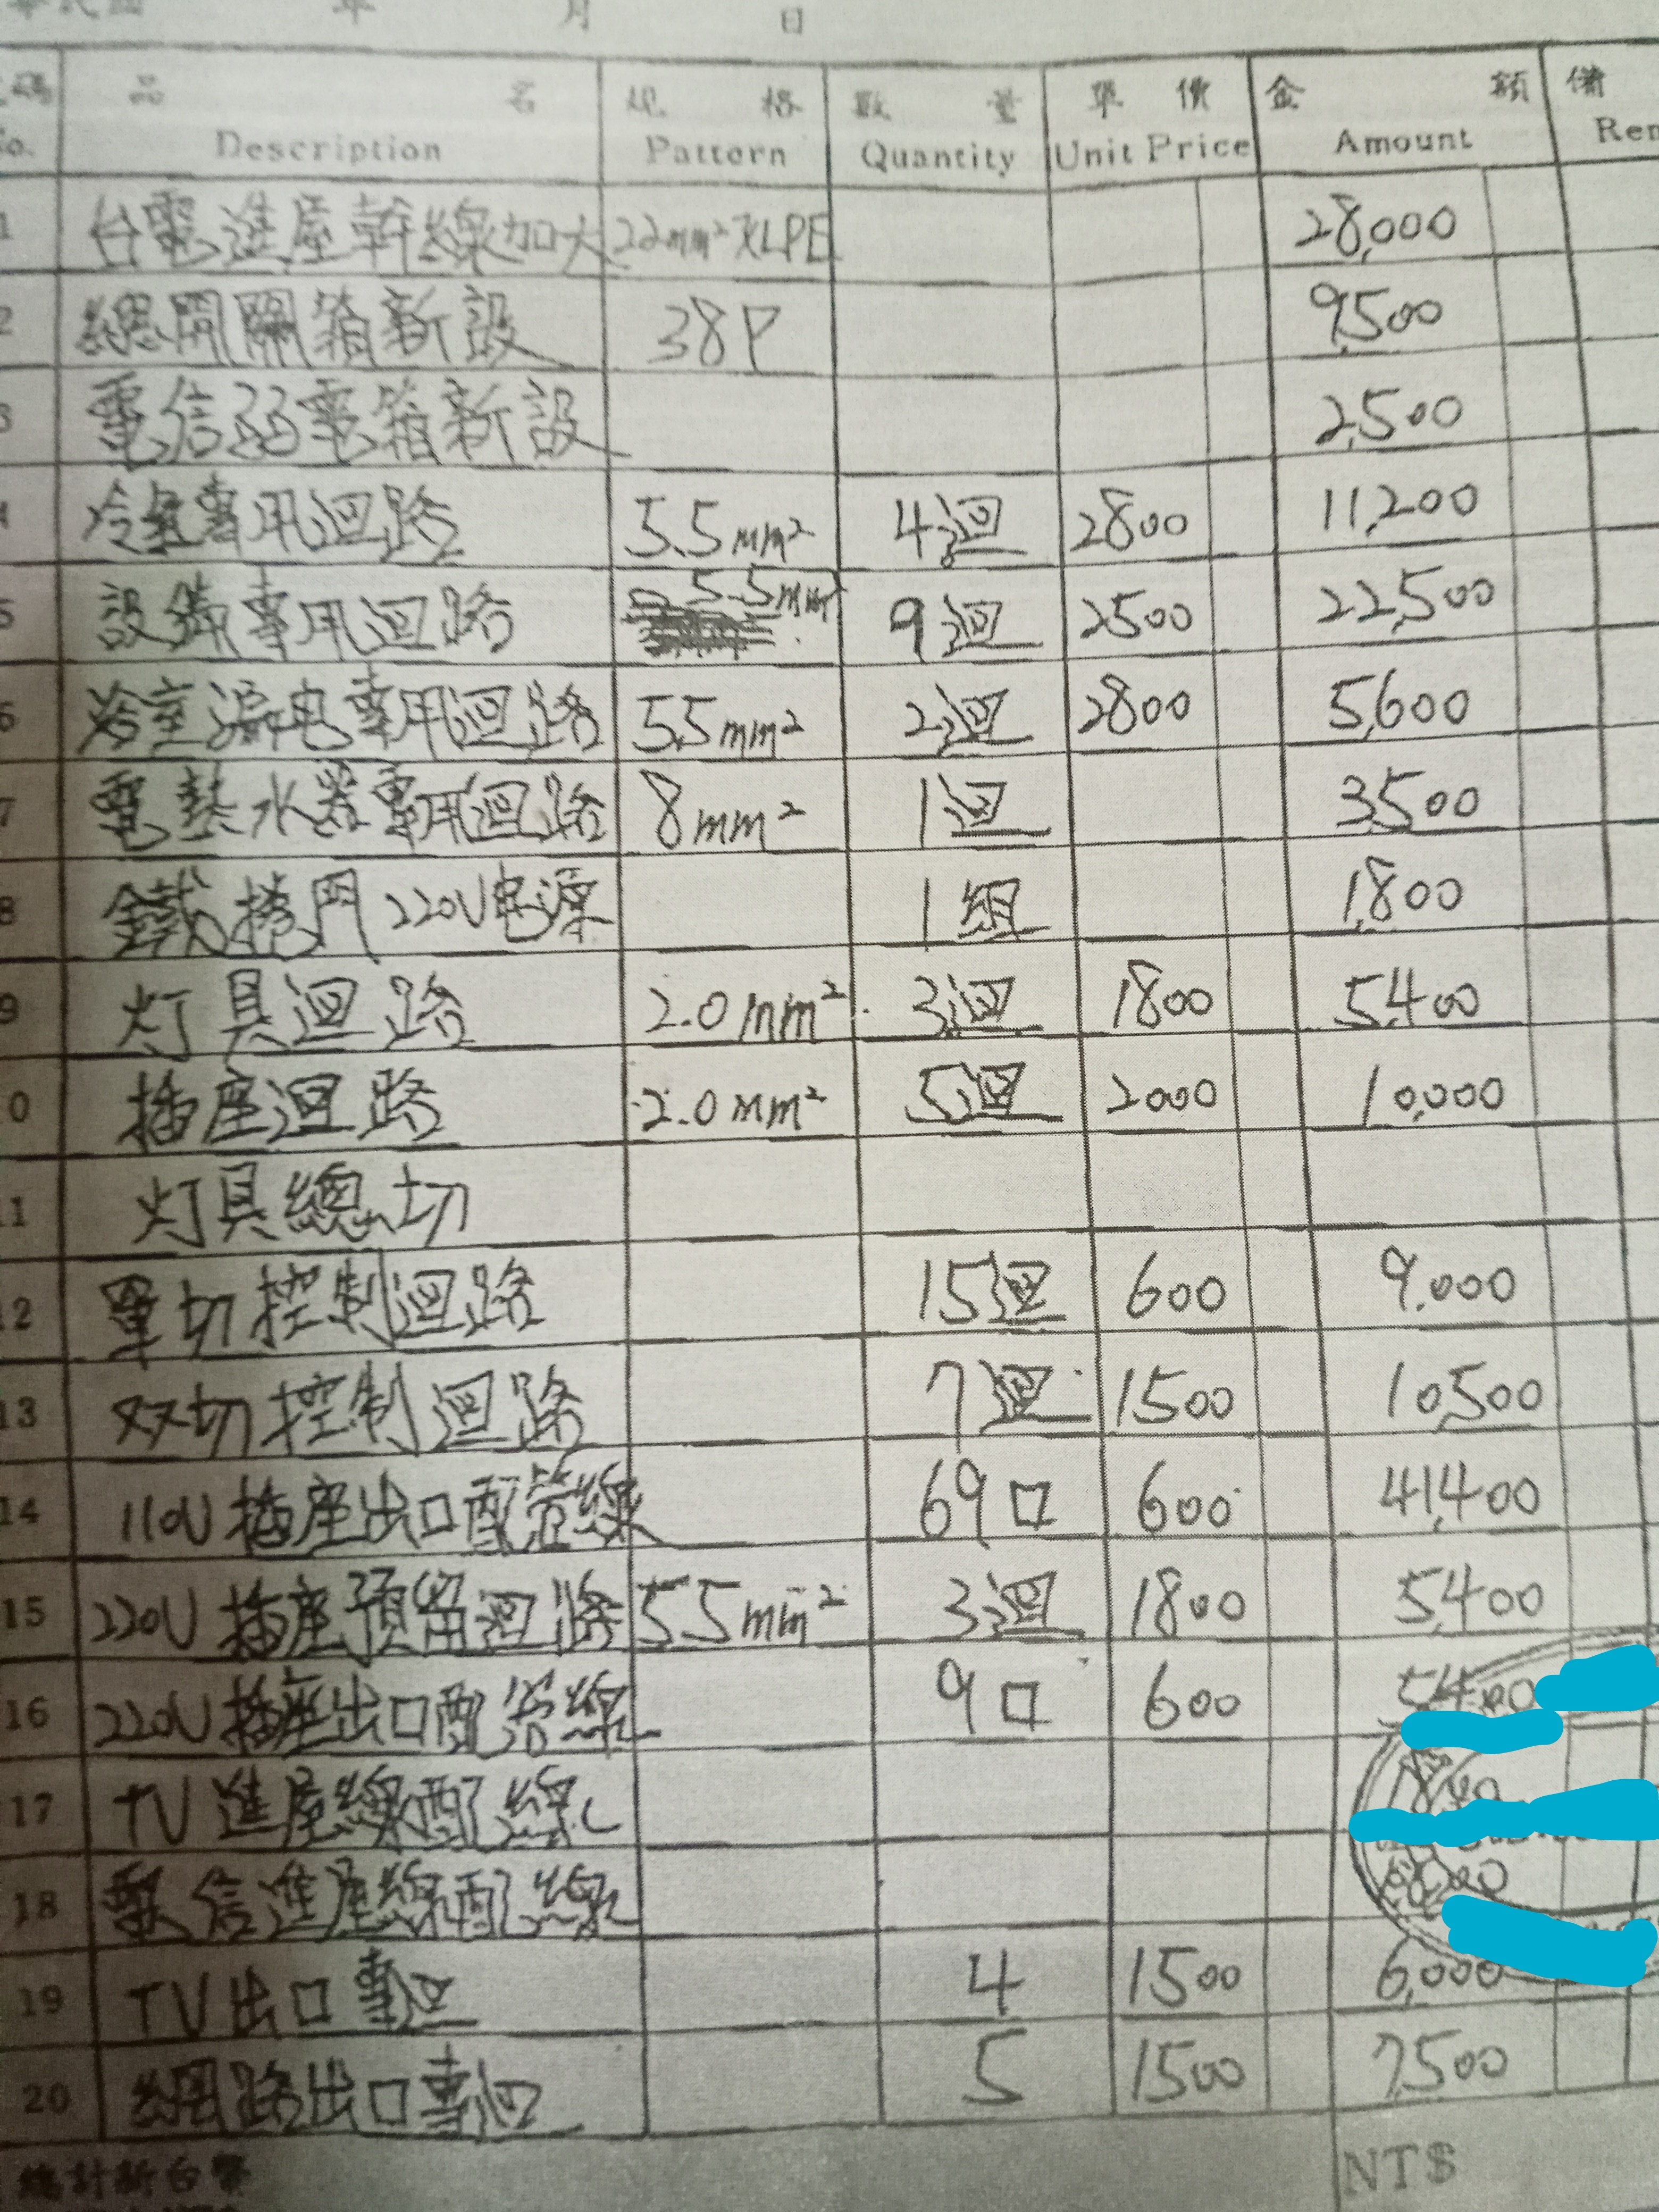 年 月 日
品名 規格 數量 單價 金額 備
No. Description Pattern Quantity Unit Price Amount Rem
1 台電進屋幹線加大 22mm² XLPE 28,000
2 總開關箱新設 38P 9,500
3 電信弱電箱新設 2,500
4 冷氣專用迴路 5.5mm² 4迴 2800 11,200
5 設備專用迴路 5.5mm² 9迴 2500 22,500
6 漏电專用迴路 5.5mm² 2迴 2800 5,600
7 電熱水器專用迴路 8mm² 1迴 3,500
8 鐵捲門220V电源 1組 1,800
9 灯具迴路 2.0mm² 3迴 1800 5,400
10 插座迴路 2.0mm² 5迴 2000 10,000
11 灯具總切
12 單切控制迴路 15迴 600 9,000
13 双切控制迴路 7迴 1500 10,500
14 110V插座出口配管線 69口 600 41,400
15 220V插座預留迴路 5.5mm² 3迴 1800 5,400
16 220V插座出口配管線 9口 600 5,400
17 TV進屋線配線
18 電信進屋線配線
19 TV出口專迴 4 1500 6,000
20 網路出口專迴 5 1500 7,500
總計新台幣 NT$